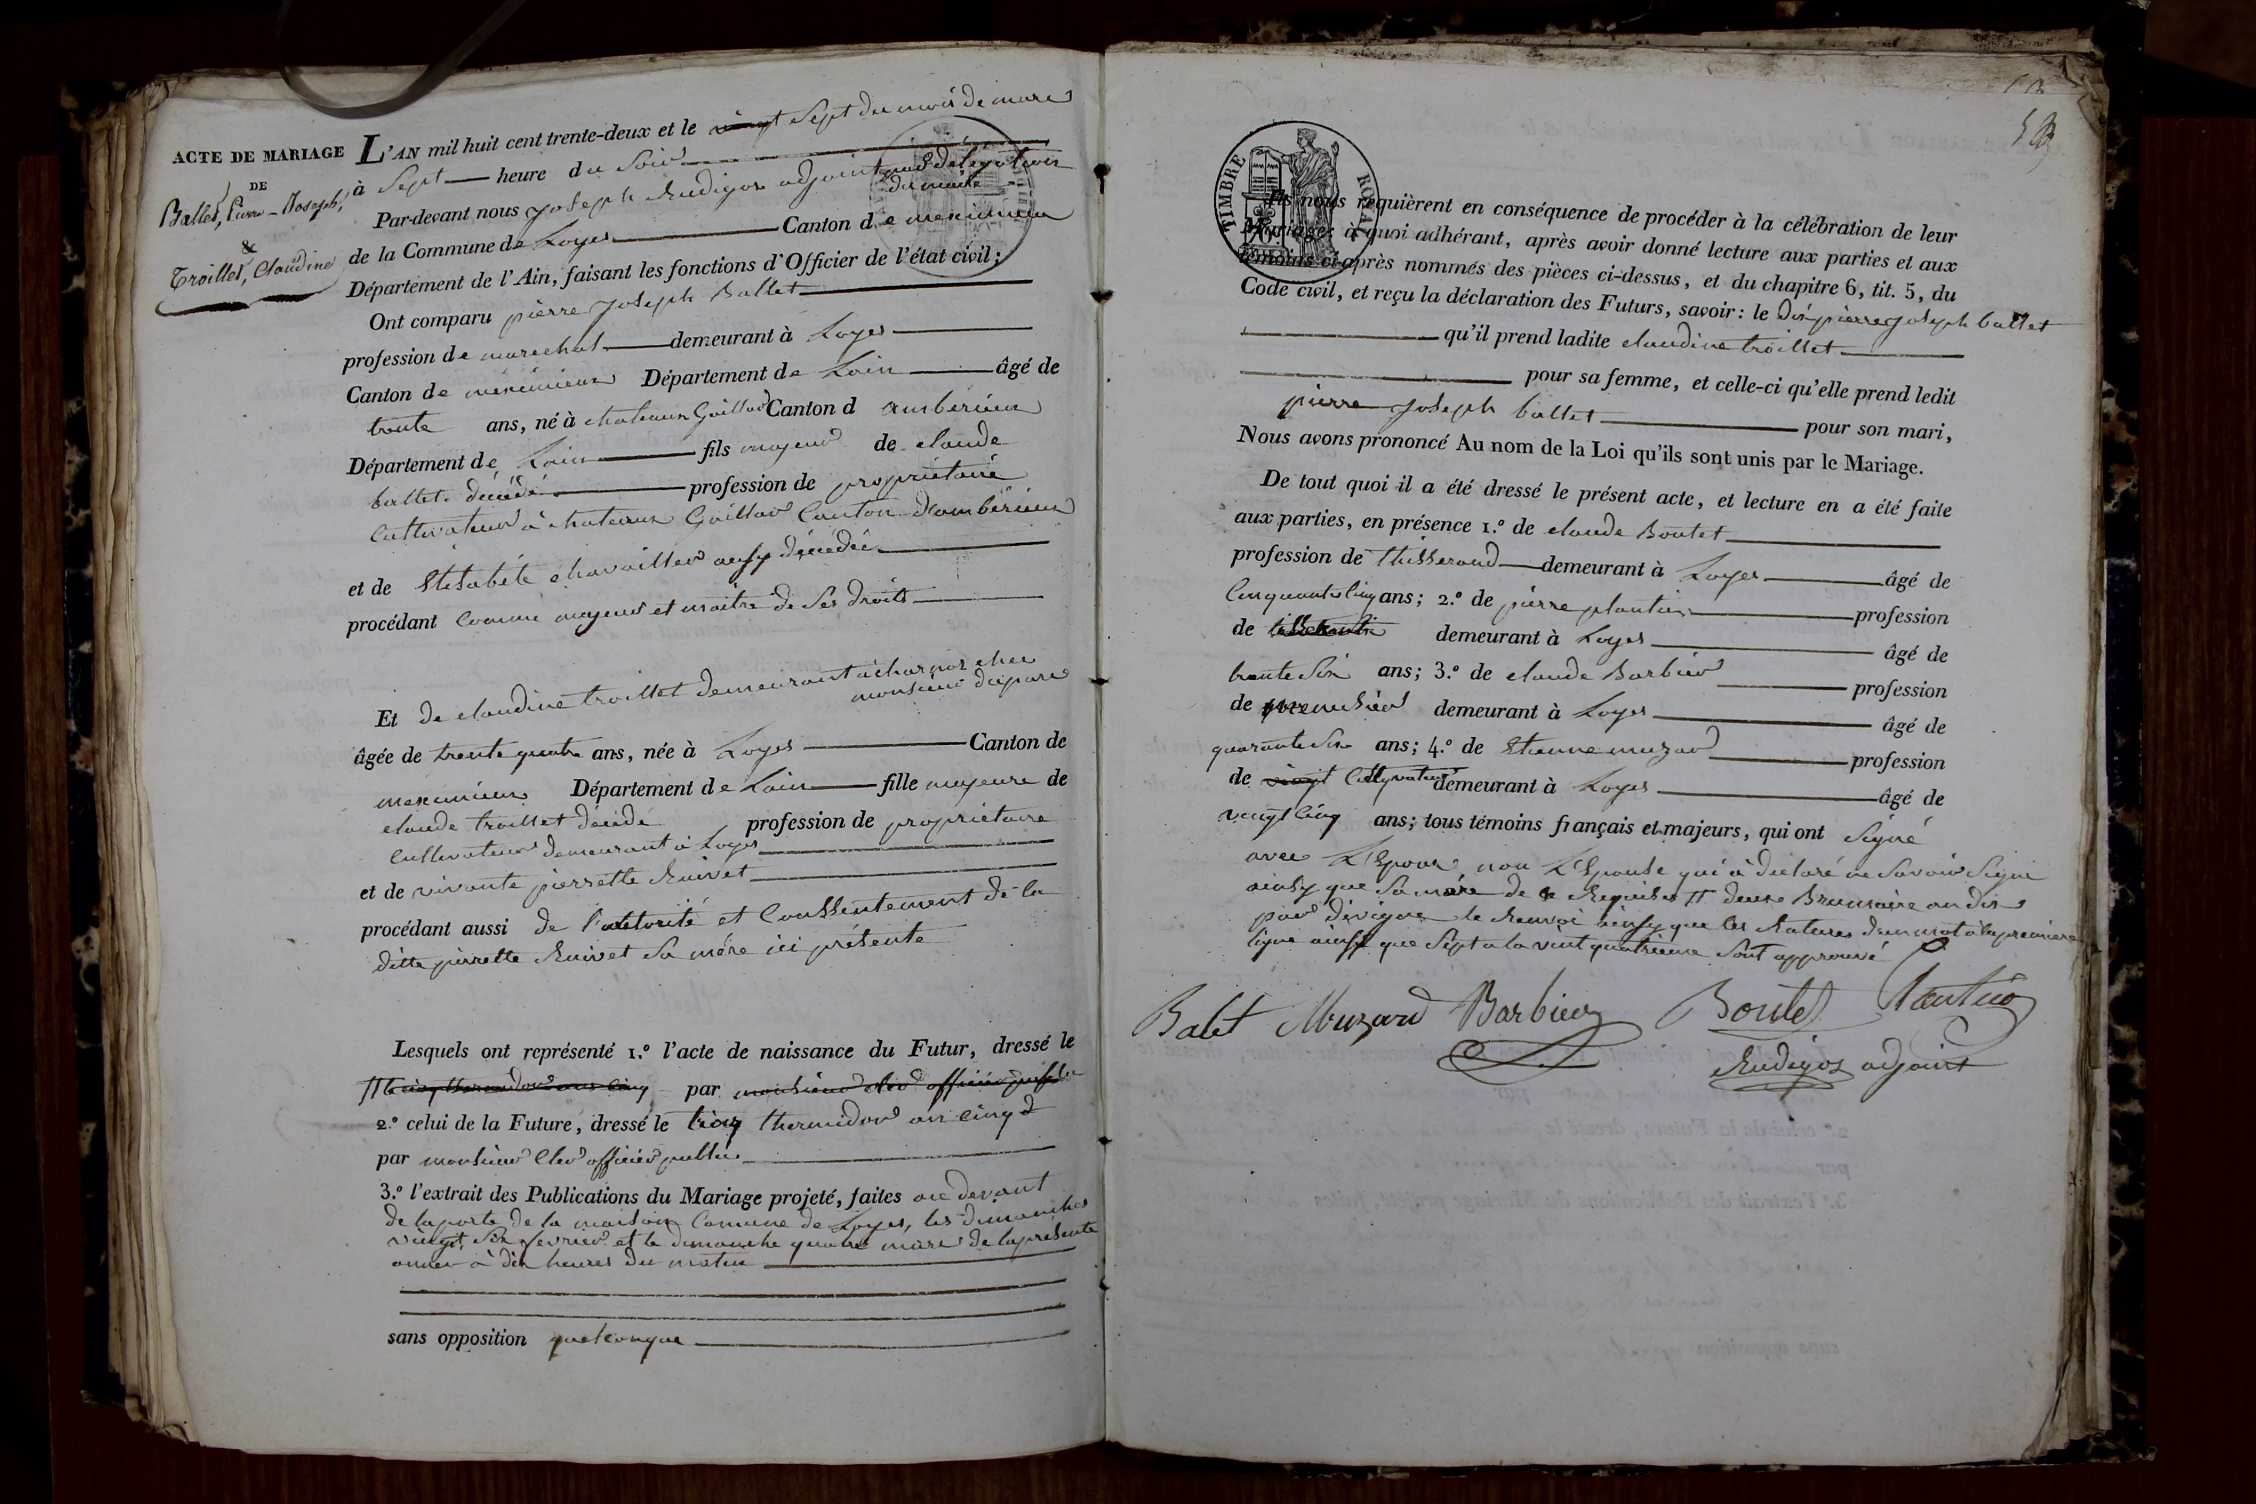 ACTE DE MARIAGE
DE
Ballet, Pierre-Joseph,
&
Troillet, Claudine
L'AN mil huit cent trente-deux et le vingt Sept du mois de mars
à Sept heure du Soir
Par-devant nous joseph Rudigoz adjoint par délégation
du maire
de la Commune de Loyes Canton de meximieux
Département de l'Ain, faisant les fonctions d'Officier de l'état civil;
Ont comparu pierre joseph Ballet
profession de marechal demeurant à Loyes
Canton de méximieux Département de Lain âgé de
trente ans, né à chateaux Gaillard Canton d ambérieux
Département de Lain fils majeur de claude
ballet décédé profession de propriétaire
Cultivateur à chateaux Gaillar Canton d'ambérieux
et de Elisabéte chavailler ausy décédée
procédant Comme majeur et maitre de Ses droits
Et de claudine troillet demeurant à charnoz chez
monsieur duparc
âgée de trente quatre ans, née à Loyes Canton de
meximieux Département de Lain fille majeure de
claude troillet décédé profession de propriétaire
Cultivateur demeurant à Loyes
et de vivante pierrette Ruivet
procédant aussi de l'autorité et Conssentement de la
ditte pierrette Ruivet Sa mére ici présente
Lesquels ont représenté 1.º l'acte de naissance du Futur, dressé le
par monsieur officier
2.º celui de la Future, dressé le cinq thermidor an cinq
par monsieur Cler officier public
3.º l'extrait des Publications du Mariage projeté, faites au devant
de la porte de la maison Comune de Loyes, les dimanches
vingt Six fevrier et le dimanche quatre mars de la présente
année à dix heures du matin
sans opposition quelconque
TIMBRE ROYAL
Ils nous requièrent en conséquence de procéder à la célébration de leur
Mariage; à quoi adhérant, après avoir donné lecture aux parties et aux
témoins ci-après nommés des pièces ci-dessus, et du chapitre 6, tit. 5, du
Code civil, et reçu la déclaration des Futurs, savoir: le dit pierre joseph ballet
qu'il prend ladite claudine troillet
pour sa femme, et celle-ci qu'elle prend ledit
pierre joseph ballet pour son mari,
Nous avons prononcé Au nom de la Loi qu'ils sont unis par le Mariage.
De tout quoi il a été dressé le présent acte, et lecture en a été faite
aux parties, en présence 1.º de claude Boutet
profession de thisserand demeurant à Loyes âgé de
Cinquante Cinq ans; 2.º de pierre plantin profession
de demeurant à Loyes âgé de
trente Six ans; 3.º de claude Barbier profession
de demeurant à Loyes âgé de
quarante Six ans; 4.º de Etienne muzard profession
de vingt Cultyvateur demeurant à Loyes âgé de
vingt Cinq ans; tous témoins français et majeurs, qui ont Signé
avec L'Epoux non L'Epouse qui à déclaré ne Savoir Signé
ainsy que Sa mére de ce Requises deux Brumaire an dix
le Renvoi ainsy que les Ratures d'un mot à la premiere
ligne ainsy que Sept a la vint quatrieme Sont approuvé
Balet Muzard Barbier Boutet Plantin
Rudigoz adjoint